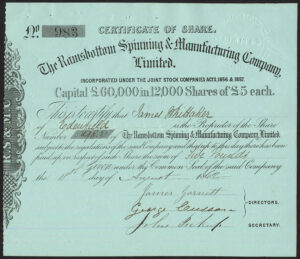 No 983
CERTIFICATE OF SHARE.
The Ramsbottom Spinning & Manufacturing Company,
Limited.
INCORPORATED UNDER THE JOINT STOCK COMPANIES ACTS, 1856 & 1857.
Capital £60,000 in 12,000 Shares of £5 each.
This is to certify that James Whittaker
of Edenfield is the Proprietor of the Share
No The Ramsbottom Spinning & Manufacturing Company, Limited,
subject to the regulations of the said Company and that up to this day there has been
paid up in respect of such Share the sum of Five Pounds
Given under the Common Seal of the said Company
the day of August
James Garnett
DIRECTORS.
George
John
SECRETARY.